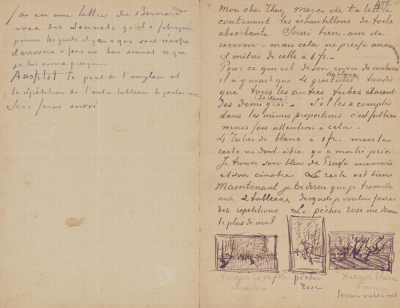 j'ai eu une lettre de Bernard
avec des sonnets qu'il a fabriqués
parmi lesquels il y en a que sont réussis
il arrivera à faire un bon sonnet ce que
je lui envie presque.
Aussitôt le pont de l'anglois et
la répétition de l'autre tableau le portrait
secs ferai envoi
Mon cher Theo, Merci de ta lettre
contenant les échantillons de toile
absorbante. Serai bien aise de
recevoir – mais cela ne presse aucunement
3 mètres de celle à 6 fr.
Pour ce qui est de son envoi de couleurs
il n'y avait que 4 gros tubes tandis
que tous les autres tubes étaient
des demi gros – S'il les a comptés
dans les mêmes proportions c'est fort bien
mais fais attention à cela –
4 Tubes de blanc à 1 fr. mais le
reste ne doit être qu'à moitié prix
Je trouve son bleu de Prusse mauvais
et son cinabre. Le reste est bien
Maintenant je te dirai que je travaille
aux 2 tableaux desquels je voulais faire
des répétitions. Le pêcher rose me donne
le plus de mal
pêcher
rose
Verger blanc